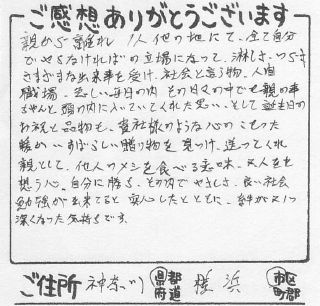 ご感想ありがとうございます
親から離れ 1人他の地にて、全て自分
でやらなければの立場になって、淋しさ、つらさ
さまざまな出来事を受け、社会と言う物、人間
職場、忙しい毎日の内 その日々の中でも親の事
ちゃんと頭の内に入っていてくれた思い、そして誕生日の
お祝と品物も、貴社様のような心のこもった
暖かい、すばらしい贈り物を見つけ、送ってくれ
親として、他人のメシを食べる意味、又人をを
想う心、自分に勝ち、その内でやさしさ、良い社会
勉強が出来てると安心したとともに、絆が又1つ
深くなった気持ちです。
ご住所 神奈川 都道府県 横浜 市区町郡